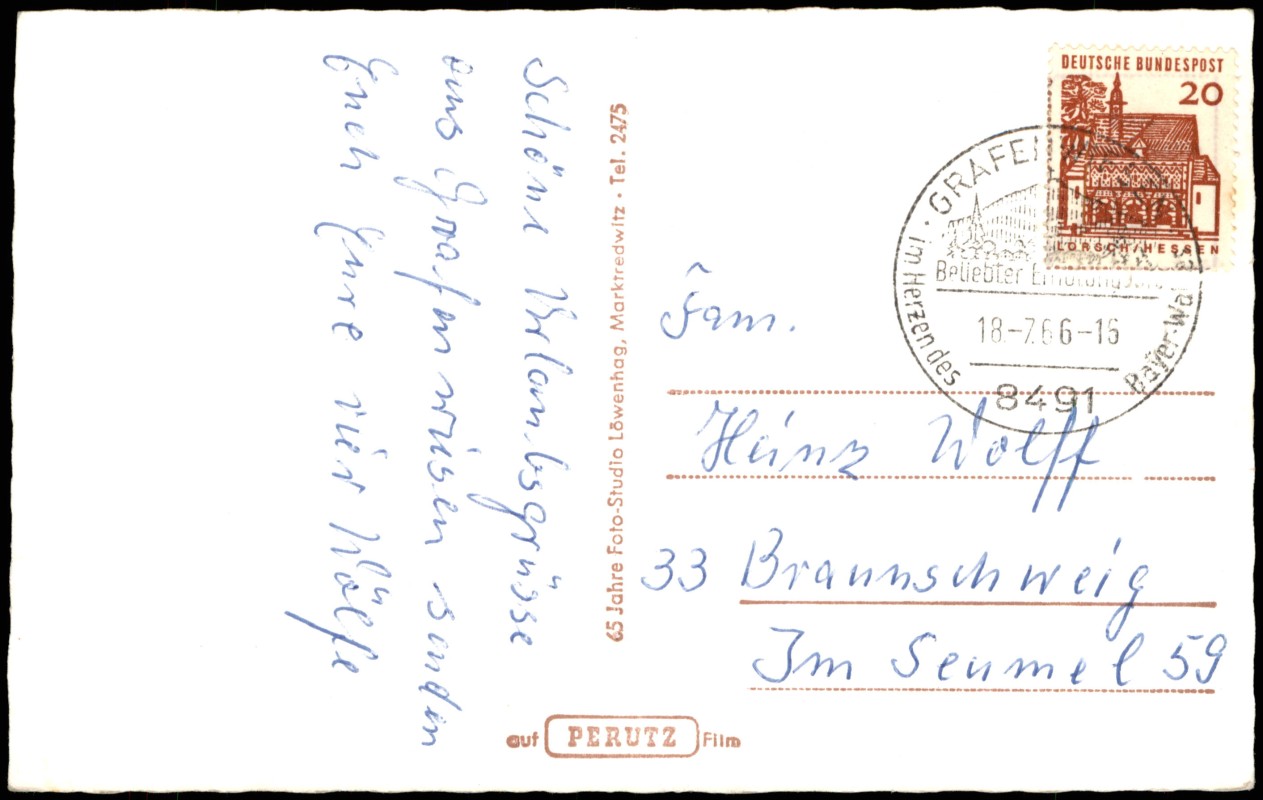 Schöne Urlaubsgrüsse
aus Grafenwiesen senden
Euch Eure vier Wölfe
65 Jahre Foto-Studio Löwenhag, Marktredwitz · Tel. 2475
DEUTSCHE BUNDESPOST
20
LORSCH/HESSEN
· GRAFEN
Beliebter Erholungsort
18.-7.66-16
im Herzen des Bayer. Wal
8491
Fam.
Heinz Wolff
33 Braunschweig
Im Seumel 59
auf PERUTZ Film